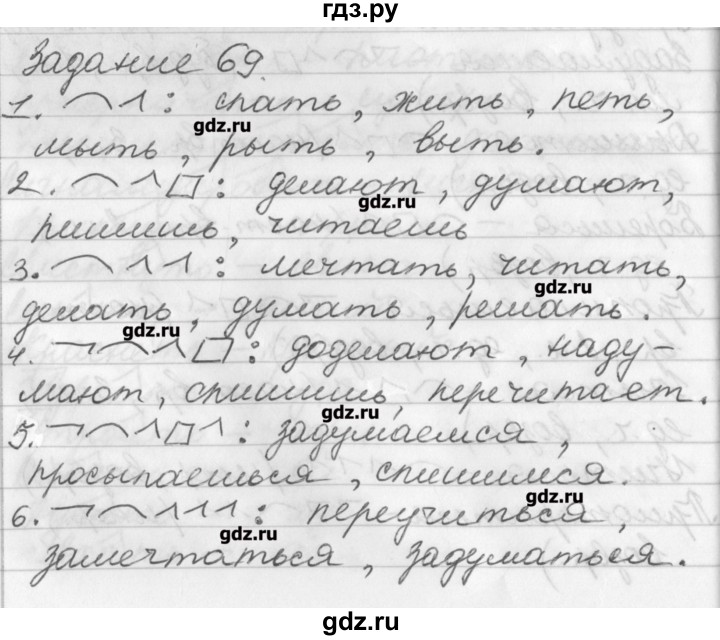 гдз.ру
Задание 69.
1. ⌒^: спать, жить, петь,
gdz.ru
мыть, рыть, выть.
2. ⌒^□: делают, думают,
gdz.ru
пишишь, читаешь
3. ⌒^^: мечтать, читать,
gdz.ru
делать, думать, решать.
gdz.ru
4. ¬⌒^□: доделают, наду-
мают, спишишь, перечитает.
gdz.ru
5. ¬⌒^□^: задумаемся,
просыпаешься, спишимся.
gdz.ru
6. ¬⌒^^^: переучиться,
gdz.ru
замечтаться, задуматься.
gdz.ru